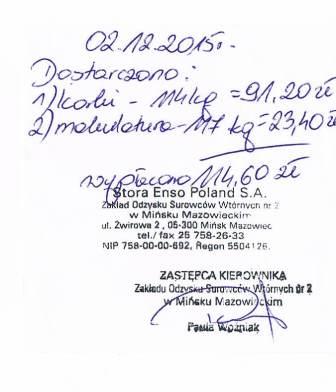 02.12.2015r.
Dostarczono:
1) korki - 114kg = 91,20 zł
2) makulatura - 117 kg = 23,40 zł
wypłacono 114,60 zł
Stora Enso Poland S.A.
Zakład Odzysku Surowców Wtórnych nr 2
w Mińsku Mazowieckim
ul. Żwirowa 2, 05-300 Mińsk Mazowiec
tel./ fax 25 758-26-33
NIP 758-00-00-692, Regon 5504126.
ZASTĘPCA KIEROWNIKA
Zakładu Odzysku Surowców Wtórnych Nr 2
w Mińsku Mazowieckim
Paula Woźniak